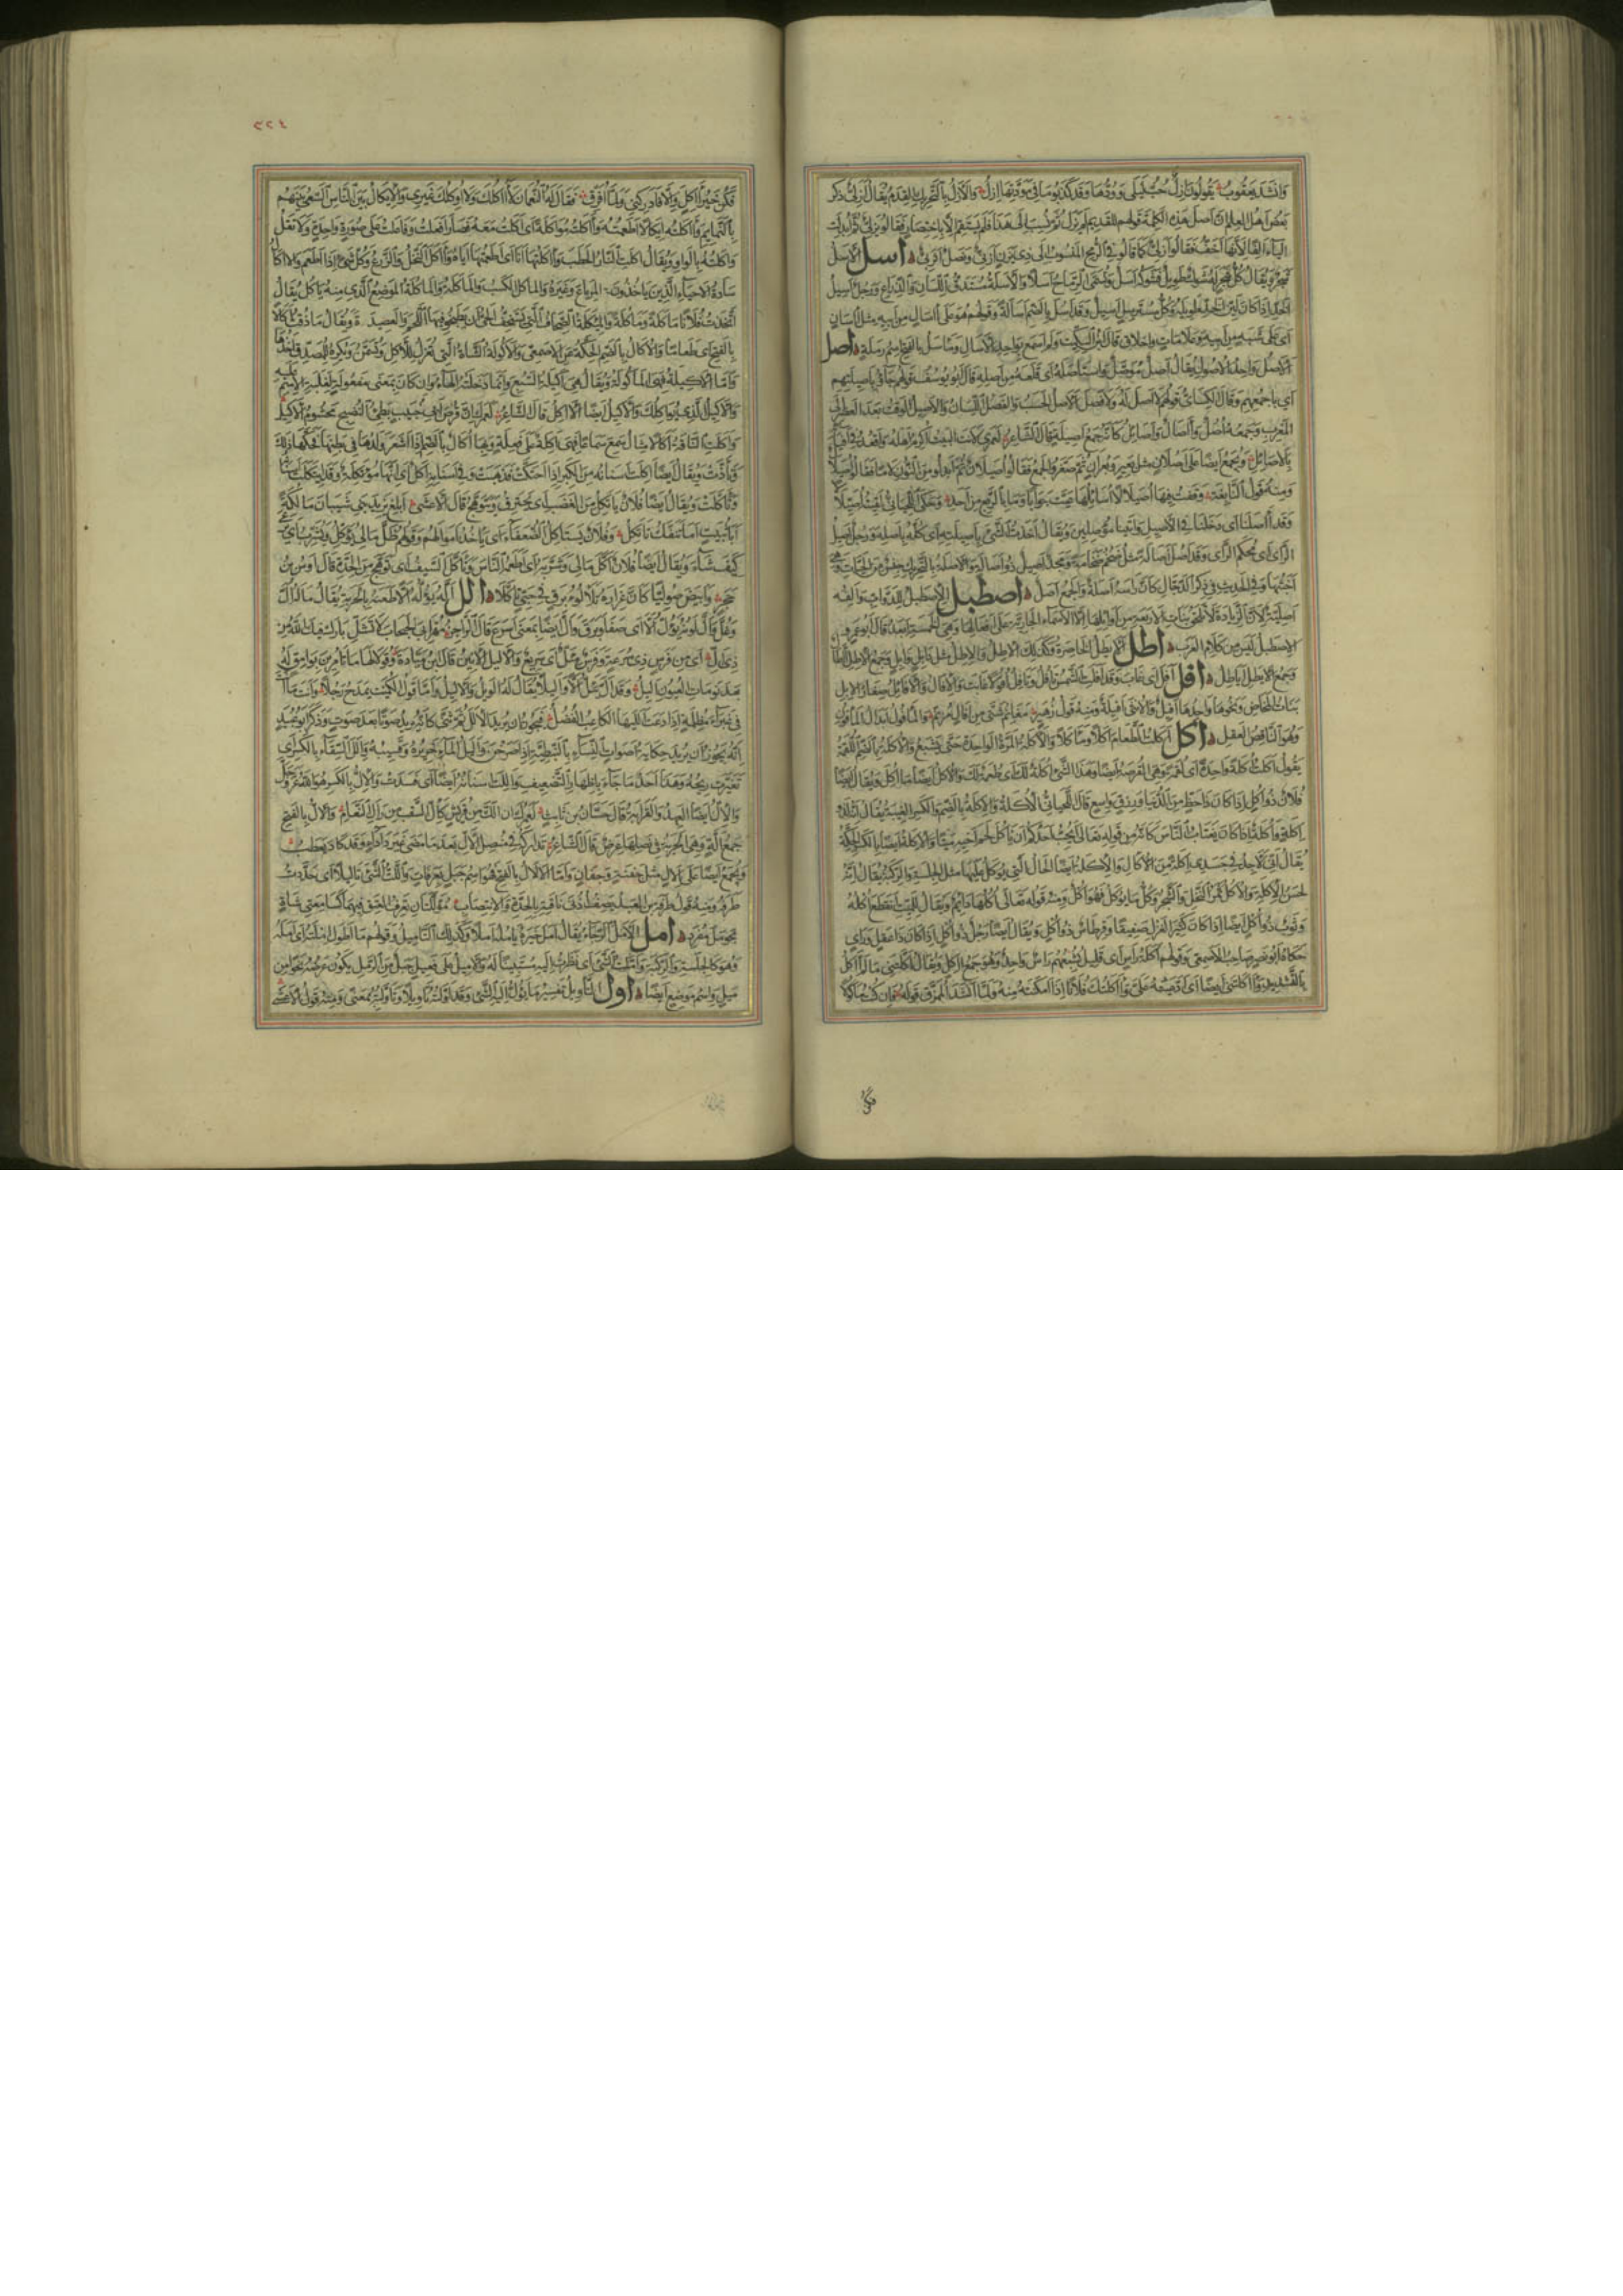 وانشد يعقوب يقولون ازل حب ليلى وودها وقد كذبوا ما في مودتها ازل والازل بالتحريك القدم يقال ازلي ذكر
بعض اهل العلم ان اصل هذه الكلمة قولهم للقديم لم يزل ثم نسب الى هذا فلم يستقم الا باختصار فقالوا يزلي ثم ابدلت
الياء الفا لانها اخف فقالوا ازلي كما قالوا في الرمح المنسوب الى ذي يزن ازني ونصل اثربي اسل الاسل
شجر ويقال كل شجر له شوك طويل فشوكه اسل وتسمى الرماح اسلا والاسلة مستدق اللسان والذراع ورجل اسيل
الخد اذا كان لين الخد طويله وكل مسترسل اسيل وقد اسل بالضم اسالة وقولهم هو على آسال من ابيه مثل آسان
اي على شبه من ابيه وعلامات واخلاق قال ابن السكيت ولم اسمع بواحد الآسال ومأسل بالفتح اسم رملة اصل
الاصل واحد الاصول يقال اصل مؤصل واستأصله اي قلعه من اصله قال ابو يوسف قولهم جاؤا باصيلتهم
اي باجمعهم وقال الكسائي قولهم لا اصل له ولا فصل الاصل الحسب والفصل اللسان والاصيل الوقت بعد العصر الى
المغرب وجمعه اصل وآصال واصائل كانه جمع اصيلة قال الشاعر لعمري لانت البيت اكرم اهله واقعد في افيائه
بالاصائل ويجمع ايضا على اصلان مثل بعير وبعران ثم صغروا الجمع فقالوا اصيلان ثم ابدلوا من النون لاما فقالوا اصيلال
ومنه قول النابغة وقفت فيها اصيلالا اسائلها عيت جوابا وما بالربع من احد وحكى اللحياني لقيته اصيلالا
وقد آصلنا اي دخلنا في الاصيل واتينا مؤصلين ويقال اخذت الشئ باصيلته اي كله باصله ورجل اصيل
الراى اي محكم الراى وقد اصل اصالة مثل ضخم ضخامة ومجد اصيل ذو اصالة والاصلة بالتحريك جنس من الحيات وهي
اخبثها وفي الحديث في ذكر الدجال كان راسه اصلة والجمع اصل اصطبل الاصطبل للدواب والفه
اصلية لان الزيادة لا تلحق بنات الاربعة من اوائلها الا الاسماء الجارية على افعالها وهي من الخمسة ابعد قال ابو عمرو
الاصطبل ليس من كلام العرب اطل الايطل الخاصرة وكذلك الاطل والاطل مثل ابل وابل وجمع الاطل آطال
وجمع الايطل اياطل افل افل اي غاب وقد افلت الشمس تأفل وتأفل افولا غابت والافال والافائل صغار الابل
بنات المخاض ونحوها واحدها افيل والانثى افيلة ومنه قول زهير مغانم شتى من افال مزنم والمأفول ابدال المأفون
وهو الناقص العقل اكل اكلت الطعام اكلا ومأكلا والاكلة المرة الواحدة حتى يشبع والاكلة بالضم اللقمة
يقول اكلت اكلة واحدة اي لقمة وهي القرصة ايضا وهذا الشئ اكلة لك اي طعمة لك والاكل ايضا ما اكل ويقال ايضا
فلان ذو اكل اذا كان ذا حظ من الدنيا ورزق واسع قال اللحياني الاكلة والاكلة بالضم والكسر الغيبة يقال انه لذو
اكلة واكلة اذا كان يغتاب الناس كانه من قوله تعالى ايحب احدكم ان ياكل لحم اخيه ميتا والاكلة ايضا بالكسر الحكة
يقال اني لاجد في جسدي اكلة من الاكال والاكلة ايضا الحال التي يوكل عليها مثل الجلسة والركبة يقال انه
لحسن الاكلة والاكل ثمر النخل والشجر وكل ما يوكل فهو اكل ومنه قوله تعالى اكلها دائم ويقال للميت انقطع اكله
وثوب ذو اكل ايضا اذا كان كثير الغزل صفيقا وقرطاس ذو اكل ويقال ايضا رجل ذو اكل اذا كان ذا عقل وراى
حكاه ابو نصر صاحب الاصمعي وقولهم هم اكلة راس اي قليل يشبعهم راس واحد وهو جمع آكل ويقال اكلتني ما لم آكل
بالتشديد وآكلتني ايضا اي ادعيته علي وآكلتك فلانا اذا امكنته منه ولما انشد الممزق قوله فان كنت ماكولا
فكن
فكن خير آكل والا فادركني ولما امزق فقال له النعمان لا آكلك ولا اوكلك غيري والايكال بين الناس السعي بينهم
بالنمايم وآكلته ايكالا اطعمته وآكلته مواكلة اي اكلت معه فصار افعلت وفاعلت على صورة واحدة ولا تقل
واكلته بالواو ويقال اكلت النار الحطب وآكلتها انا اي اطعمتها اياه وآكل النخل والزرع وكل شئ اذا اطعم والآكال
سادة الاحياء الذين ياخذون المرباع وغيره والمأكل الكسب والمأكلة والمأكلة الموضع الذي منه تاكل يقال
اتخذت فلانا مأكلة ومأكلة والمئكلة الصحاف التي يستخف الحي ان يطبخوا فيها اللحم والعصيدة ويقال ما ذقت اكالا
بالفتح اي طعاما والاكال بالضم الحكة عن الاصمعي والاكولة الشاة التي تعزل للاكل وتسمن ويكره للمصدق اخذها
واما الاكيلة فهي المأكولة ويقال هي اكيلة السبع وانما دخلته الهاء وان كان بمعنى مفعولة لغلبة الاسم عليه
والاكيل الذي يواكلك والاكيل ايضا الآكل قال الشاعر لعمرك ان قرص ابي خبيب بطئ النضج محشوم الاكيل
واكلت الناقة اكالا مثال سمع سماعا فهي اكلة على فعلة وبها اكال بالضم اذا اشعر ولدها في بطنها فحكها ذلك
وتاذت ويقال ايضا اكلت اسنانه من الكبر اذا احتكت فذهبت وفي اسنانه اكل اي انها مؤتكلة وقد ائتكلت اسنانه
وتأكلت ويقال ايضا فلان ياتكل من الغضب اي يحترق ويتوهج قال الاعشى ابلغ يزيد بني شيبان مألكة
ابا ثبيت اما تنفك تاتكل وفلان يستاكل الضعفاء اي ياخذ اموالهم وقولهم ظل مالي يؤكل ويشرب اي يرعى
كيف شاء ويقال ايضا فلان اكل مالي وشربه اي اطعمه الناس وتأكل السيف اي توهج من الحدة قال اوس بن
حجر وابيض صوليا كان غراره تلألؤ برق في حبي تأكلا الل اله يؤله الا طعنه بالحربة يقال ما له ال
وغل وال لونه يؤل الا اي صفا وبرق وال ايضا بمعنى اسرع قال الراجز مهر ابي الحبحاب لا تشلي بارك فيك الله من
ذي ال اي من فرس ذي سرعة وفرس مئل اي سريع والاليل الانين قال ابن ميادة وقولا لها ما تامرين بوامق له
بعد نومات العيون اليل وقد ال يئل الا واليلا يقال له الويل والاليل واما قول الكميت يمدح رجلا وانت ما انت
في غبراء مظلمة اذا دعت الليها الكاعب الفضل فيجوز ان يريد الالل ثم ثنى كانه يريد صوتا بعد صوت وذكر ابو عبيد
انه يجوز ان يريد حكاية اصوات النساء بالنبطية اذا صرخن واليل الماء خريره وقسيبه والل السقاء بالكسر اي
تغيرت ريحه وهذا احد ما جاء باظهار التضعيف والللت اسنانه ايضا اي فسدت والال بالكسر هو الله عز وجل
والال ايضا العهد والقرابة قال حسان بن ثابت لعمرك ان الك من قريش كال السقب من رال النعام والال بالفتح
جمع الة وهي الحربة في نصلها عرض قال الشاعر تداركه في منصل الال بعد ما مضى غير دأداء وقد كاد يعطب
ويجمع ايضا على الال مثل جفنة وجفان واما الالال بالفتح فهو اسم جبل بعرفات واللت الشئ تاليلا اي حددت
طرفه ومنه قول طرفة بن العبد يصف اذني ناقته بالحدة والانتصاب مؤللتان تعرف العتق فيهما كسامعتي شاة
بحومل مفرد امل الامل الرجاء يقال امل خيره يامله املا وكذلك التاميل وقولهم ما اطول املته اي امله
وهو كالجلسة والركبة وتاملت الشئ اي نظرت اليه مستبينا له والاميل على فعيل حبل من الرمل يكون عرضه نحوا من
ميل واسم موضع ايضا اول التاويل تفسير ما يؤل اليه الشئ وقد اولته تاويلا وتاولته بمعنى ومنه قول الاعشى
٢٢٤